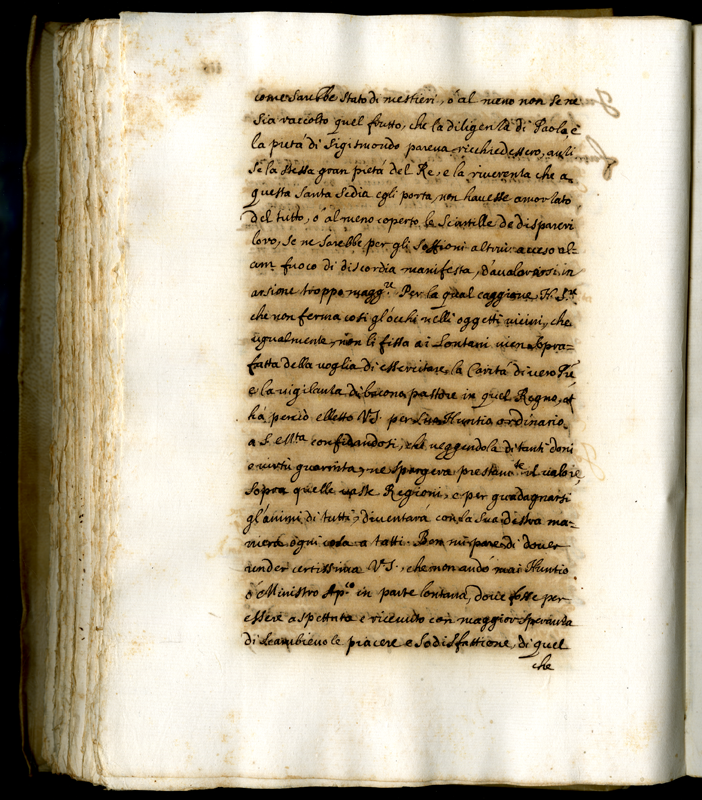 come sarebbe stato di mestieri, ò al meno non se ne
sia raccolto quel frutto, che la diligenza di Paolo, e
la pietà di Sigismondo pareva richiedessero, anzi
se la stessa gran pietà del Re, e la riverenza che a
questa Santa Sedia egli porta, non havesse amorzato
del tutto, ò al meno coperto le Scintille de dispareri
loro, se ne sarebbe per gli Soffioni altrui acceso al-
cun fuoco di discordia manifesta, d'avalorarsi in
arsione troppo magg.re Per la qual caggione, N. S.re
che non ferma così gl'occhi nelli oggetti vicini, che
ugualmente, non li fissa ai Lontani vien sopra-
fatta della voglia di essercitare la Carità di vero P̃re
e la vigilanza di buono pastore in quel Regno, et
hà perciò elletto V.S. per Suo Nuntio ordinario
a S. M.ta confidandosi, che veggendola di tanti doni
e virtù guarnita, ne spargerà prestam.te il valore,
sopra quelle vaste Regioni, e per guadagnarsi
gl'animi di tutti, diventarà con la Sua destra ma-
niera ogni cosa a tutti. Bon mi pare di dover
render certissima V.S., che non andò mai Nuntio
ò Ministro Ap.co in parte lontana, dove fosse per
essere aspettato e ricevuto con maggior speranza
di Scambievole piacere e Sodisfattione, di quel
che